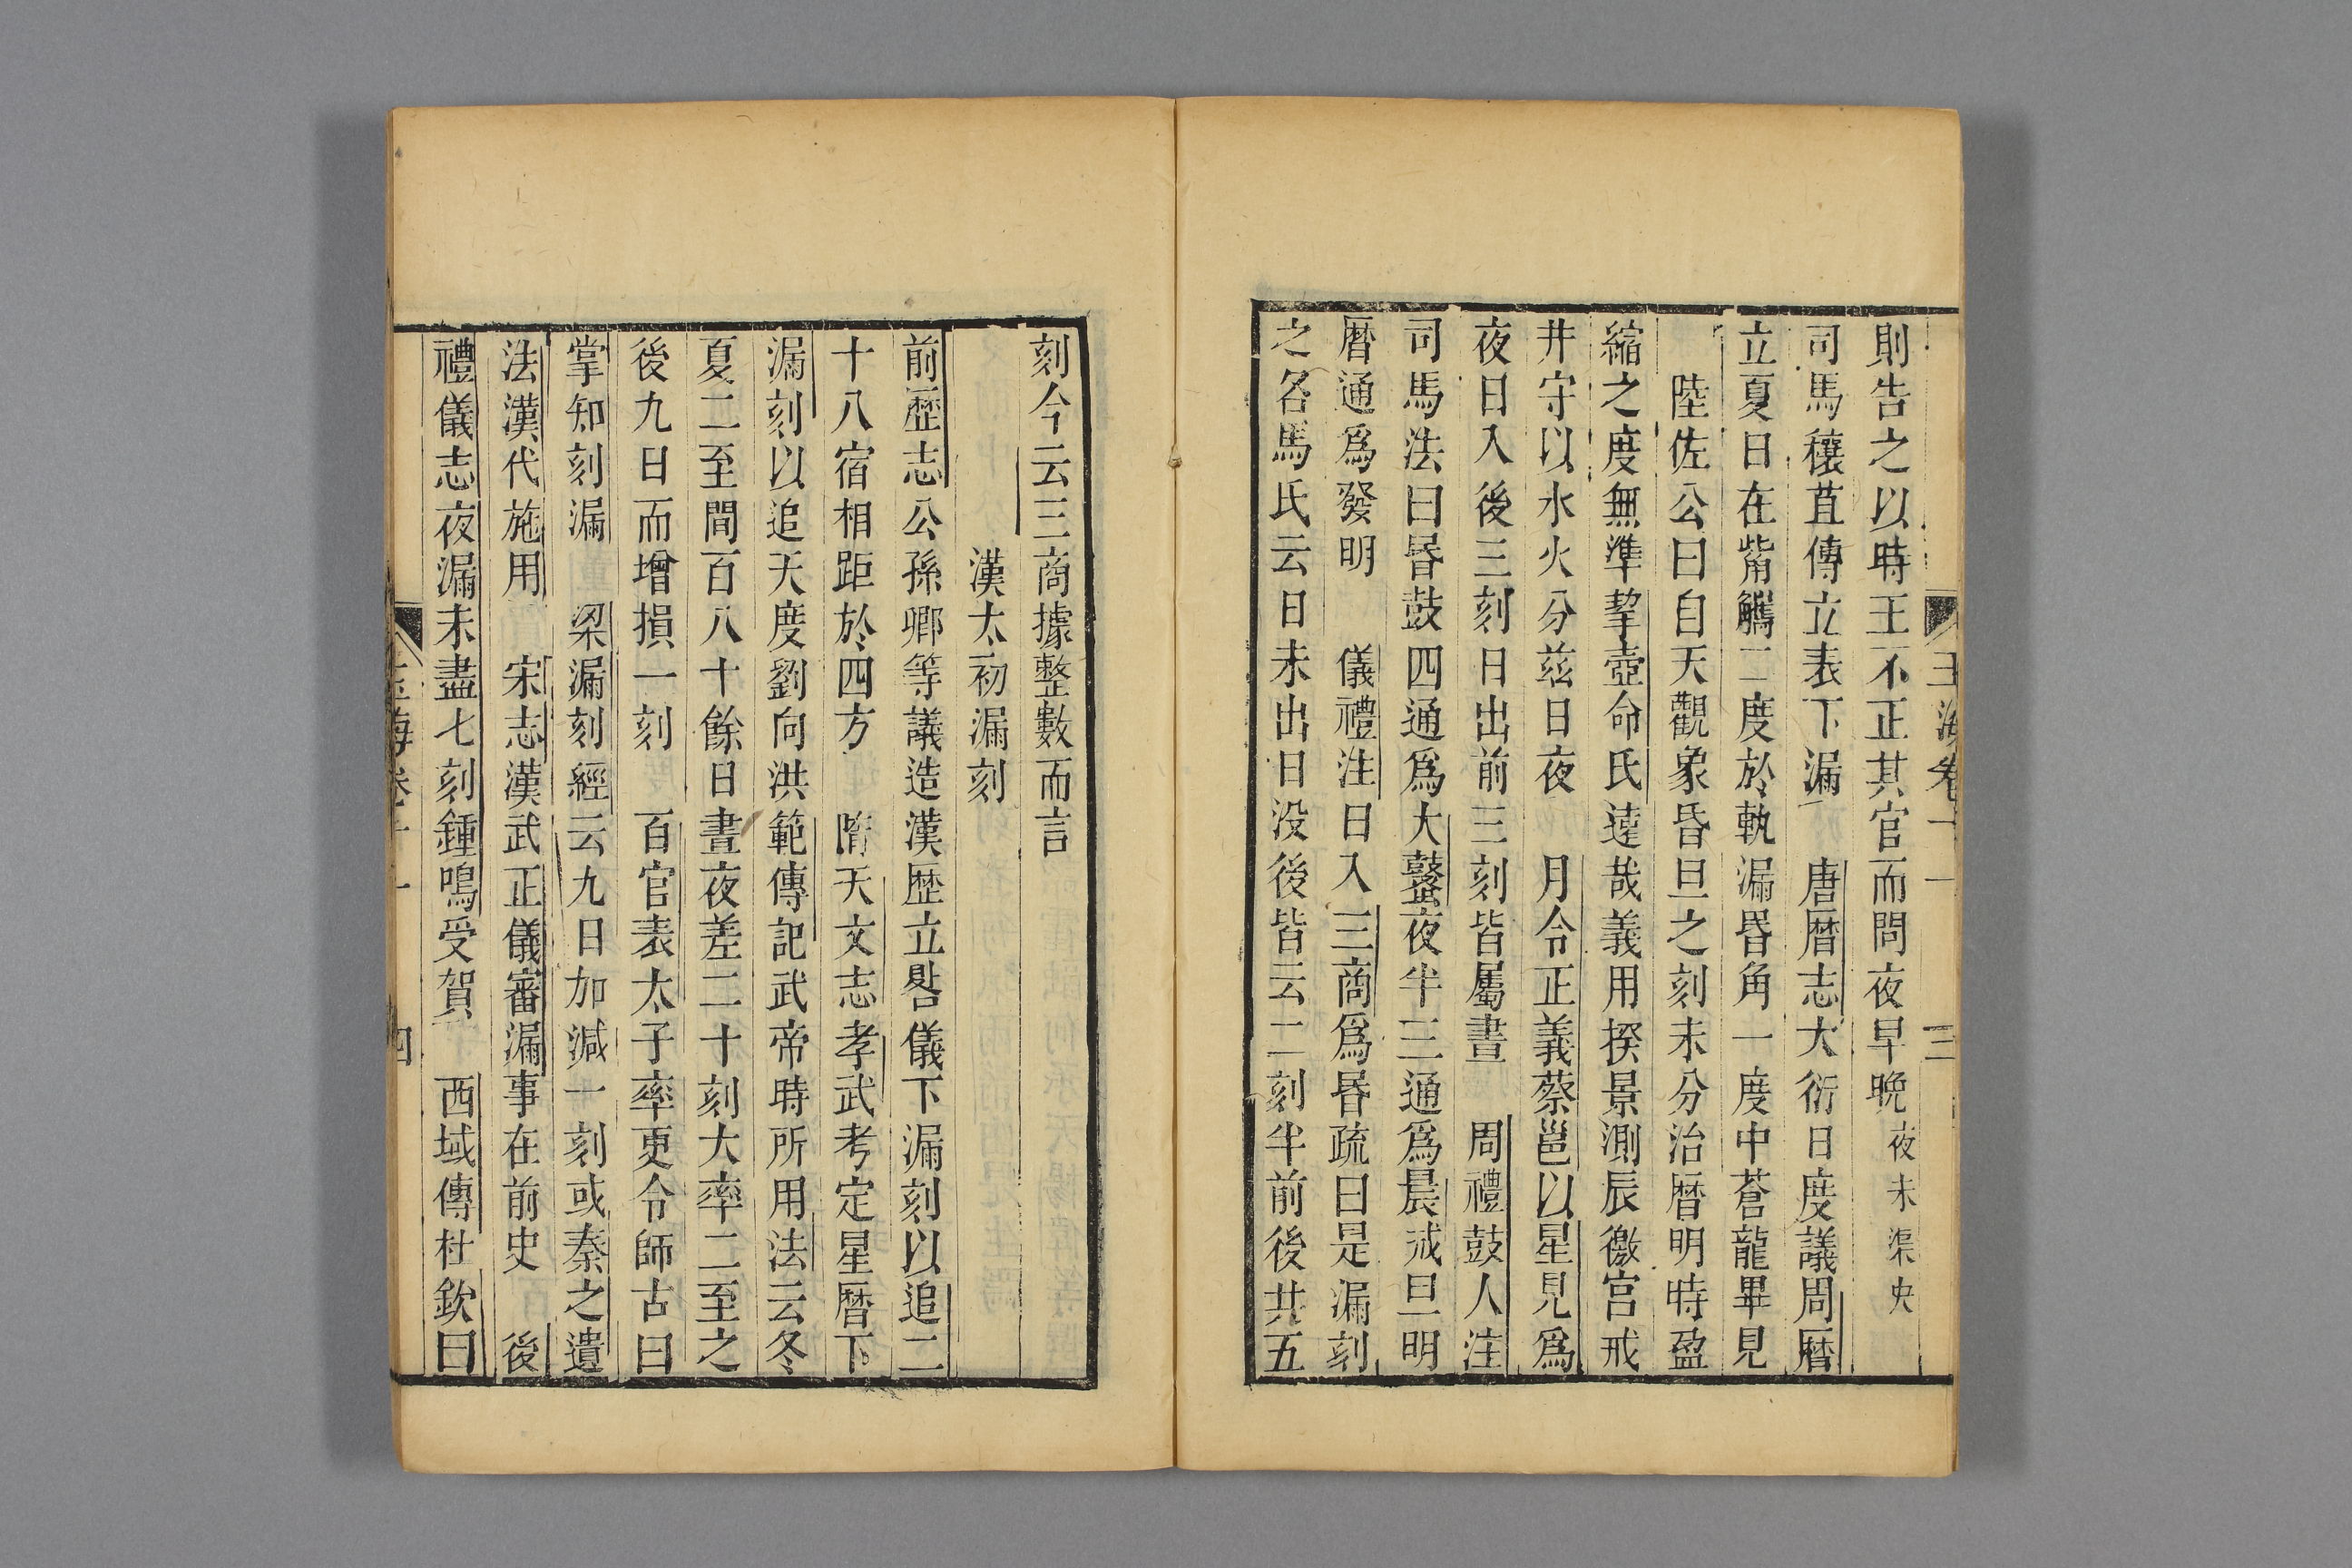 玉海卷十一 三
則告之以時王不正其官而問夜早晚夜未渠央
司馬穰苴傳立表下漏 唐曆志大衍日度議周曆
立夏日在觜觿二度於軌漏昬角一度中蒼龍畢見
陸佐公曰自天觀象昏旦之刻未分治曆明時盈
縮之度無準挈壺命氏遠哉義用揆景測辰徼宮戒
井守以水火分兹日夜 月令正義蔡邕以星見爲
夜日入後三刻日出前三刻皆屬晝 周禮鼓人注
司馬法曰昬鼓四通爲大鼜夜半三通爲晨戒旦明
曆通爲發明 儀禮注日入三商爲昬疏曰是漏刻
之名馬氏云日未出日没後皆云二刻半前後共五
刻今云三商據整數而言
漢太初漏刻
前歷志公孫卿等議造漢歷立晷儀下漏刻以追二
十八宿相距於四方 隋天文志孝武考定星曆下
漏刻以追天度劉向洪範傳記武帝時所用法云冬
夏二至間百八十餘日晝夜差二十刻大率二至之
後九日而增損一刻 百官表太子率更令師古曰
掌知刻漏 梁漏刻經云九日加減一刻或秦之遺
法漢代施用 宋志漢武正儀審漏事在前史 後
禮儀志夜漏未盡七刻鍾鳴受賀 西域傳杜欽曰
玉海卷十一 四